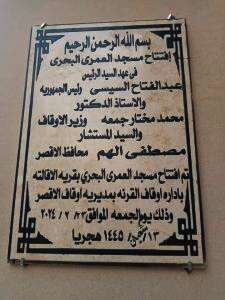 بسم الله الرحمن الرحيم
إفتتاح مسجد العمرى البحرى
في عهد السيد الرئيس
عبدالفتاح السيسى رئيس الجمهوريه
والاستاذ الدكتور
محمد مختار جمعه وزير الاوقاف
والسيد المستشار
مصطفى الهم محافظ الاقصر
تم افتتاح مسجد العمرى البحرى بقريه الاقالته
باداره اوقاف القرنه بمديريه اوقاف الاقصر
وذلك يوم الجمعه الموافق ٢٠٢٤ / ٢ / ٢٣
١٣ شعبان ١٤٤٥ هجريا